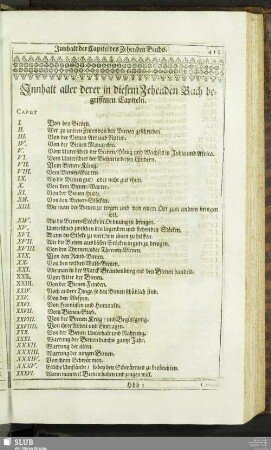 Innhalt der Capitel des Zehenden Buchs.
Innhalt aller derer in diesem Zehenden Buch be-
griffenen Capiteln.
CAPUT
I. Von den Bienen.
II. Wer zu ersten von den Bienen geschrieben.
III. Von der Bienen Art und Natur.
IV. Von der Bienen Monarchie.
V. Vom Unterschied der Bienen, Hönig und Wachs in India und Africa.
VI. Vom Unterschied der Bienen in den Ländern.
VII. Vom Bienen-König.
VIII. Vom Bienen-Garten.
IX. Wo die Bienen gut / oder nicht gut stehen.
X. Von dem Bienen-Warter.
XI. Von der Bienen-Hütte.
XII. Von den Bienen-Stöcken.
XIII. Wie man die Bienen zu und von einem Ort zum andern bringen
soll.
XIV. Wie die Bienen-Stöcke in Ordnung zu bringen.
XV. Unterschied zwischen den liegenden und stehenden Stöcken.
XVI. Wann die Stöcke zu viel / wie ihnen zu helffen.
XVII. Wie die Bienen aus bösen Stöcken in gute zu bringen.
XVIII. Von den Thronen oder Threnen-Bienen.
XIX. Von den Raub-Bienen.
XX. Von den wilden Wald-Bienen.
XXI. Wie man in der Marck Brandenburg mit den Bienen handelt.
XXII. Vom Alter der Bienen.
XXIII. Von der Bienen Feinden.
XXIV. Noch andere Dinge / so den Bienen schädlich sind.
XXV. Von den Wespen.
XXVI. Von Hornüssen und Hummeln.
XXVII. Vom Bienen-Stich.
XXVIII. Von der Bienen Krieg / und Begütigung.
XXIX. Von ihrer Arbeit und Eintragen.
XXX. Von der Bienen Unterhalt und Nahrung.
XXXI. Wartung der Bienen durchs gantze Jahr.
XXXII. Wartung der alten.
XXXIII. Wartung der jungen Bienen.
XXXIV. Von ihrem Schwärmen.
XXXV. Etliche Umstände / so bey dem Schwärmen zu beobachten.
XXXVI. Wann man viel Bienen haben und zeugen will.
SLUB